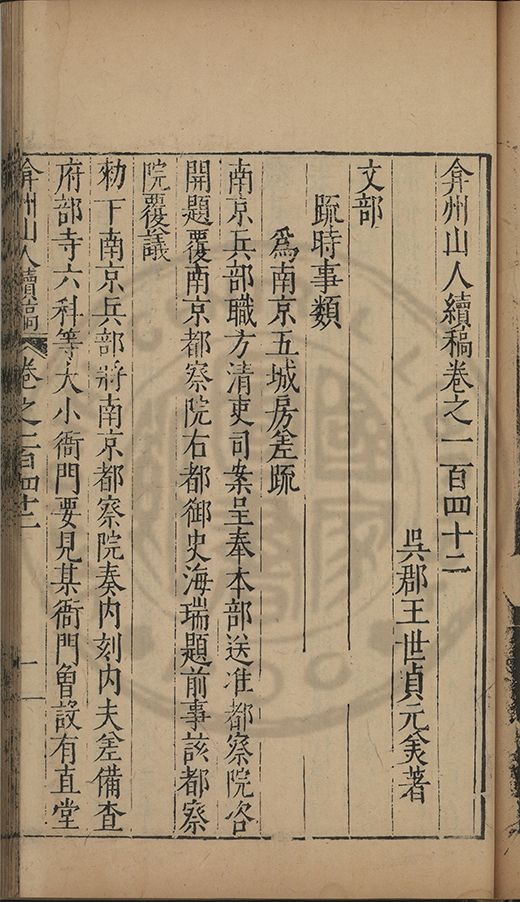 弇州山人續稿卷之一百四十二
吳郡王世貞元美著
文部
疏時事類
為南京五城房差疏
南京兵部職方清吏司案呈奉本部送准都察院咨
開題覆南京都察院右都御史海瑞題前事該都察
院覆議
勑下南京兵部將南京都察院奏內刻內夫差備查
府部寺六科等大小衙門要見某衙門曾設有直堂
弇州山人續稿 卷之一百四十二 一